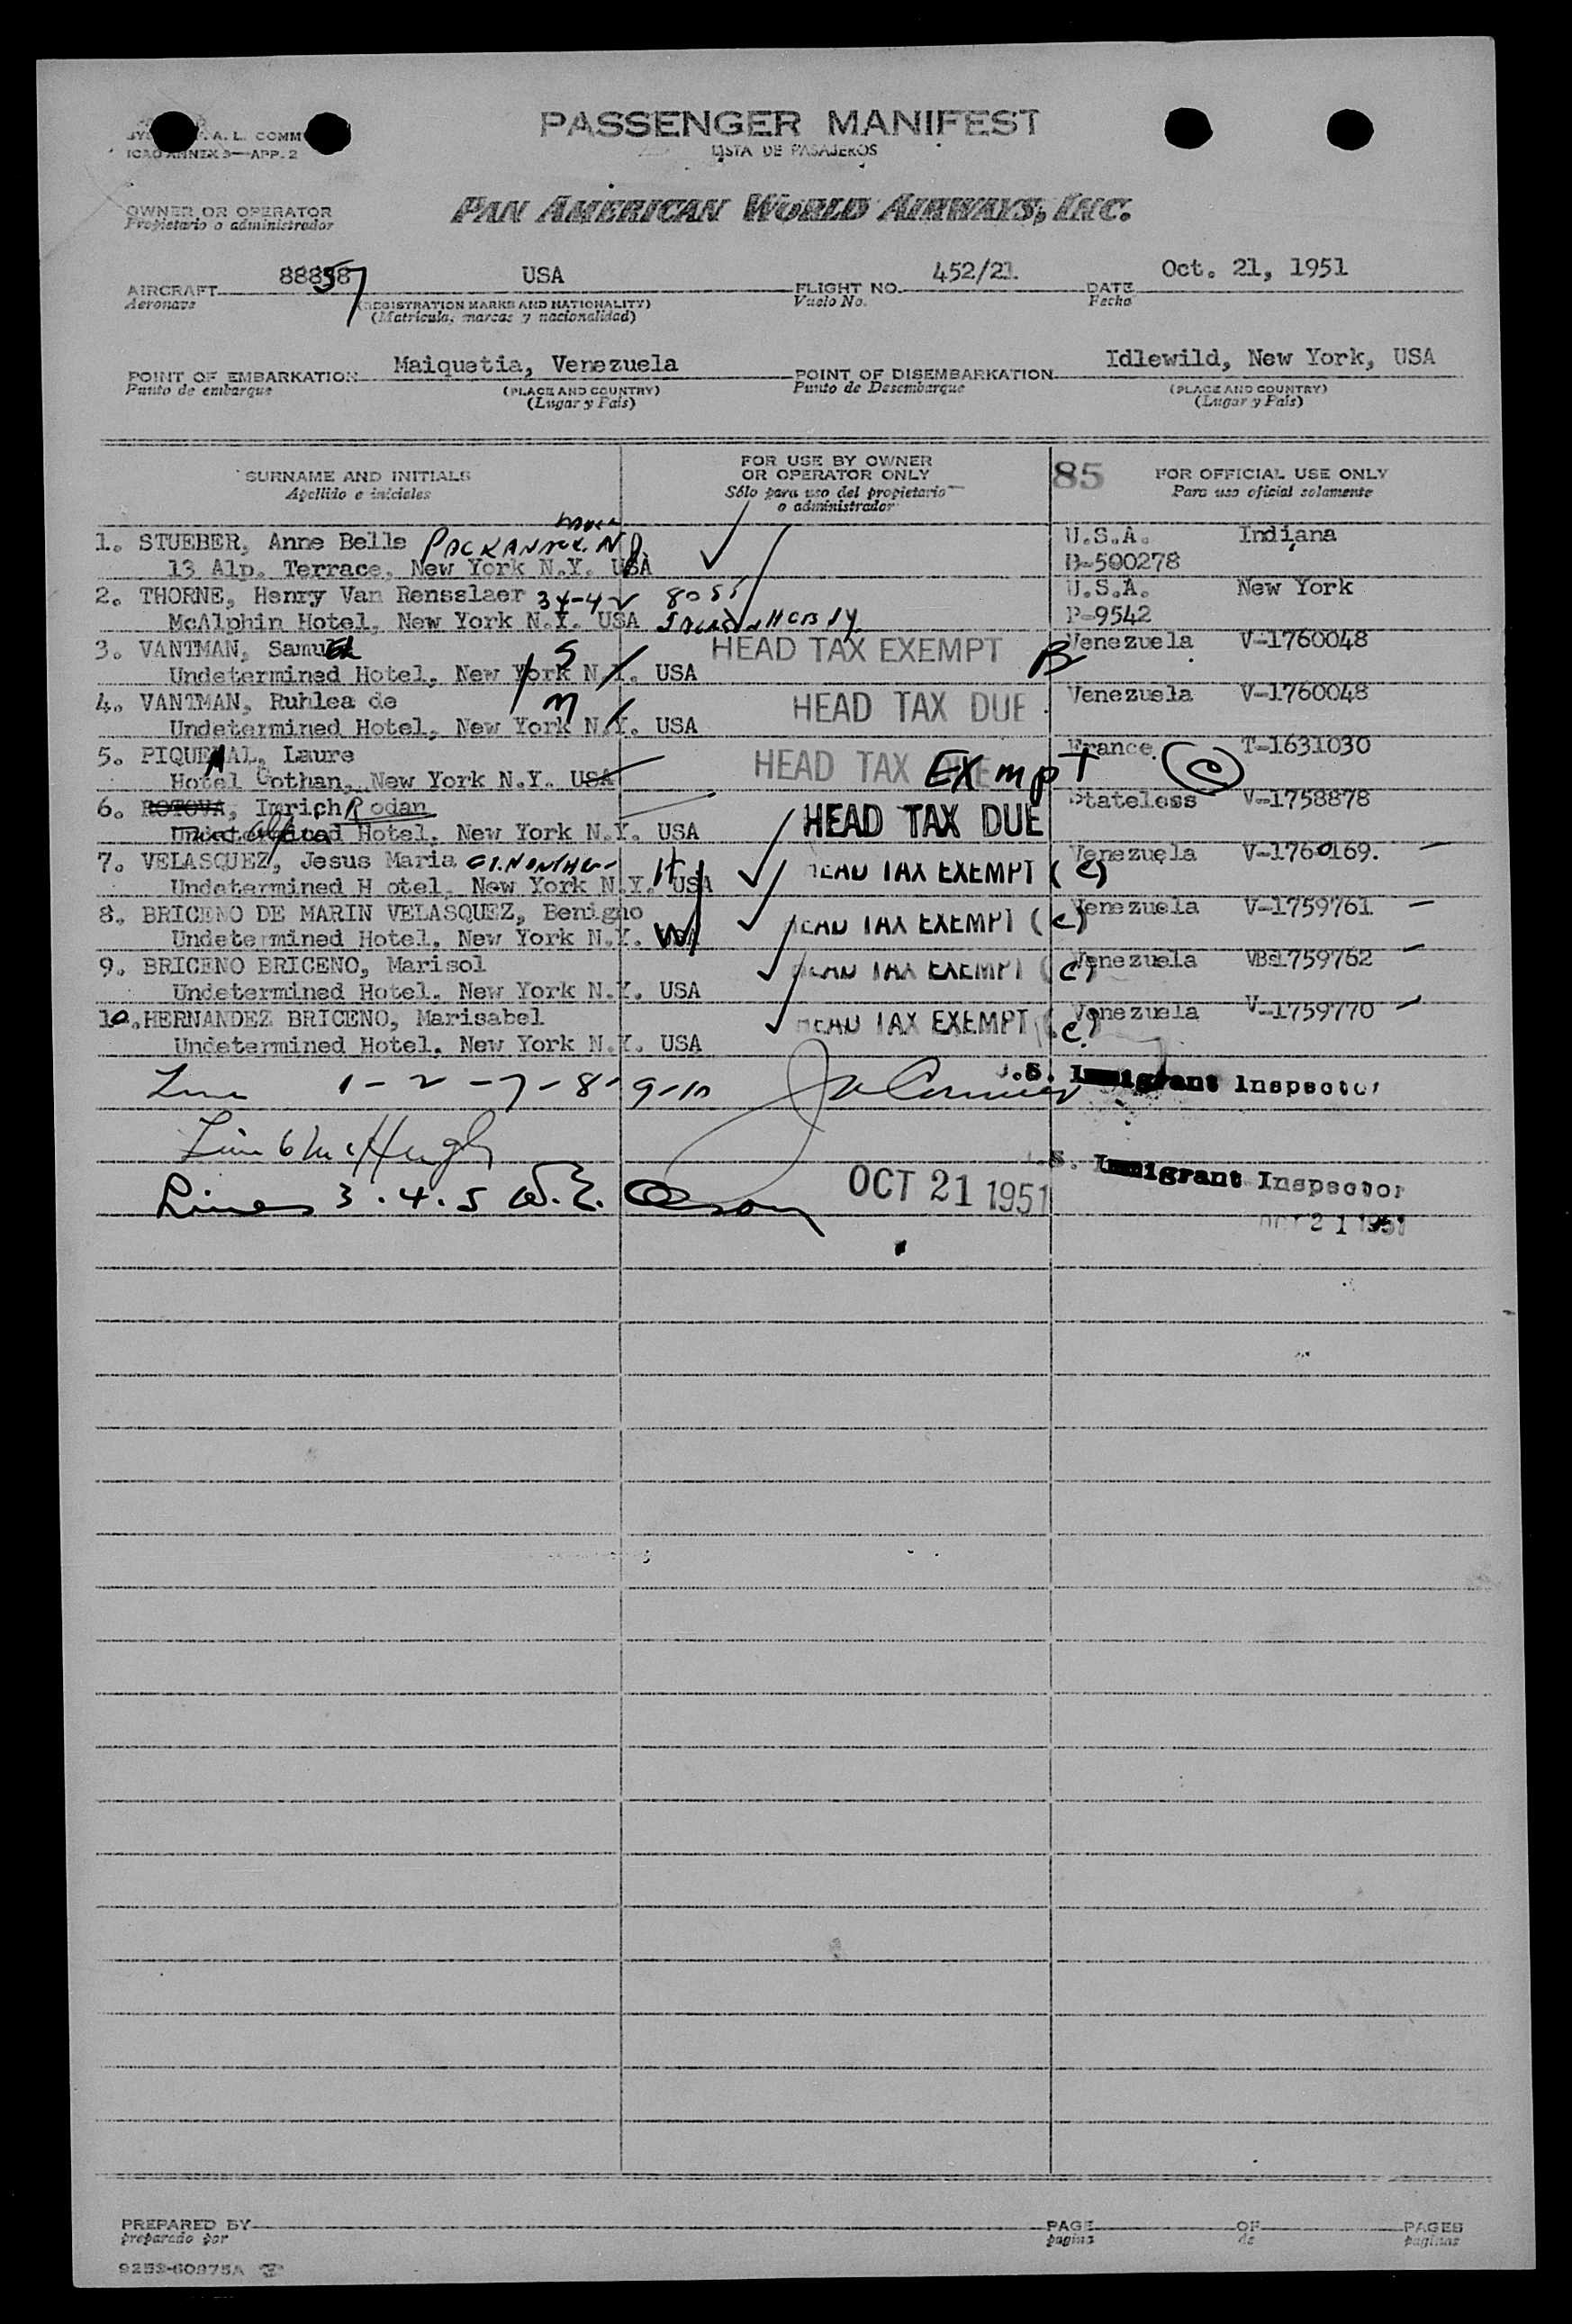 A. L. COMM
ICAO ANNEX 9—APP. 2
PASSENGER MANIFEST
LISTA DE PASAJEROS
OWNER OR OPERATOR
Propietario o administrador
PAN AMERICAN WORLD AIRWAYS, INC.
AIRCRAFT 88857 USA FLIGHT NO. 452/21 DATE Oct. 21, 1951
Aeronave (REGISTRATION MARKS AND NATIONALITY) Vuelo No. Fecha
(Matricula, marcas y nacionalidad)
POINT OF EMBARKATION Maiquetia, Venezuela POINT OF DISEMBARKATION Idlewild, New York, USA
Punto de embarque (PLACE AND COUNTRY) Punto de Desembarque (PLACE AND COUNTRY)
(Lugar y País) (Lugar y País)
SURNAME AND INITIALS FOR USE BY OWNER OR OPERATOR ONLY 85 FOR OFFICIAL USE ONLY
Apellido e iniciales Sólo para uso del propietario o administrador Para uso oficial solamente
1. STUEBER, Anne Belle PACKANACK. N.J. U.S.A. Indiana
13 Alp. Terrace, New York N.Y. USA B-500278
2. THORNE, Henry Van Rensslaer 34-42 80 St U.S.A. New York
McAlphin Hotel, New York N.Y. USA P-9542
3. VANTMAN, Samuel HEAD TAX EXEMPT B Venezuela V-1760048
Undetermined Hotel, New York N.Y. USA S
4. VANTMAN, Ruhlea de HEAD TAX DUE Venezuela V-1760048
Undetermined Hotel, New York N.Y. USA M
5. PIQUEMAL, Laure HEAD TAX EXempT France C T-1631030
Hotel Gothan, New York N.Y. USA
6. ROTOVA, Imrich Rodan HEAD TAX DUE Stateless V-1758878
Undetermined Hotel, New York N.Y. USA
7. VELASQUEZ, Jesus Maria HEAD TAX EXEMPT (c) Venezuela V-1760169.
Undetermined H otel, New York N.Y. USA H
8. BRICENO DE MARIN VELASQUEZ, Benigno HEAD TAX EXEMPT (c) Venezuela V-1759761
Undetermined Hotel, New York N.Y. USA W
9. BRICENO BRICENO, Marisol HEAD TAX EXEMPT (c) Venezuela 1759762
Undetermined Hotel, New York N.Y. USA
10. HERNANDEZ BRICENO, Marisabel HEAD TAX EXEMPT (c) Venezuela V-1759770
Undetermined Hotel, New York N.Y. USA
Line 1-2-7-8-9-10 U.S. Immigrant Inspector
Line 6 McHugh
U.S. Immigrant Inspector
Lines 3.4.5 W.E. Olson OCT 21 1951
OCT 21 1951
PREPARED BY PAGE OF PAGES
preparado por pagina de paginas